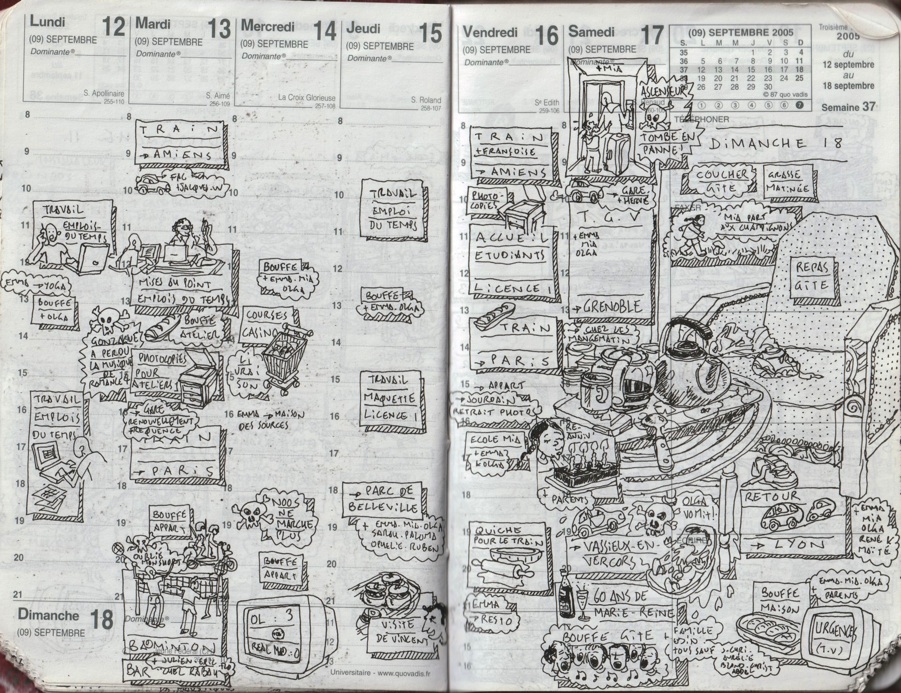 Lundi 12
(09) SEPTEMBRE
Dominante®
S. Apollinaire
255-110
8
9
10
11
TRAVAIL
EMPLOIS
DU TEMPS
12
EMMA
→ YOGA
13
BOUFFE
+ OLGA
14
15
TRAVAIL
16
EMPLOIS
DU TEMPS
17
18
19
20
21
Mardi 13
(09) SEPTEMBRE
Dominante®
S. Aimé
256-109
TRAIN
→ AMIENS
FAC
+ JACQUELIN
MISES AU POINT
EMPLOIS DU TEMPS
BOUFFE
ATELIER
GONZAGUE
A PERDU
LA MUSIQUE
ROMANCE
PHOTOCOPIES
POUR
ATELIERS
→ GARE
RENOUVELLEMENT
FREQUENCE
TRAIN
→ PARIS
BOUFFE
APPART
OUBLIE
MON SHORT
BADMINTON
+ JULIEN, ERIC
BAR "CHEZ RABAH"
Mercredi 14
(09) SEPTEMBRE
Dominante®
La Croix Glorieuse
257-108
BOUFFE
+ EMMA-MIA
OLGA
COURSES
CASINO
LI
VRAI
SON
EMMA → MAISON
DES SOURCES
NOOS
NE
MARCHE
PLUS
BOUFFE
APPART
OL : 3
REAL MD : 0
Jeudi 15
(09) SEPTEMBRE
Dominante®
S. Roland
258-107
TRAVAIL
EMPLOI
DU TEMPS
BOUFFE
+ EMMA. OLGA
TRAVAIL
MAQUETTE
LICENCE 1
→ PARC DE
BELLEVILLE
+ EMMA. MIA. OLGA
SARAH. PALOMA
OPHELIE. RUBEN
VISITE
DE VINCENT
Dimanche 18
(09) SEPTEMBRE
Dominante®
Universitaire - www.quovadis.eu
Vendredi 16
(09) SEPTEMBRE
Dominante®
Se Edith
259-106
TRAIN
+ FRANÇOISE
→ AMIENS
PHOTO-
COPIES
ACCUEIL
ETUDIANTS
LICENCE 1
TRAIN
→ PARIS
→ APPART
→ JOURDAIN
RETRAIT PHOTOS
ECOLE MIA
+ EMMA
+ OLGA
PRE-
ANNIV
+ PARENTS
QUICHE
POUR LE TRAIN
EMMA
→ RESTO
Samedi 17
(09) SEPTEMBRE
Dominante®
+ MIA
ASCENSEUR
TOMBE EN
PANNE !
→ GARE
+ HERVÉ
T.G.V
+ EMMA
MIA
OLGA
→ GRENOBLE
→ CHEZ LES
MANGEMATIN
→ VASSIEUX-EN-
VERCORS
OLGA
VOMIT !
60 ANS DE
MARIE-REINE
BOUFFE GÎTE +
FAMILLE
TOUS SAUF
(09) SEPTEMBRE 2005
S. L M M J V S D
35 1 2 3 4
36 5 6 7 8 9 10 11
37 12 13 14 15 16 17 18
38 19 20 21 22 23 24 25
39 26 27 28 29 30
© 87 quo vadis
1 2 3 4 5 6 7
Troisième
2005
du
12 septembre
au
18 septembre
Semaine 37
TÉLÉPHONER
DIMANCHE 18
COUCHER
GÎTE
GRASSE
MATINÉE
MIA PART
AUX CHAMPIGNONS
REPAS
GÎTE
RETOUR
→ LYON
+ EMMA
MIA
OLGA
RENÉ &
MAÏTÉ
BOUFFE
MAISON
+ EMMA. MIA. OLGA
+ PARENTS
URGENCE
(T.V)